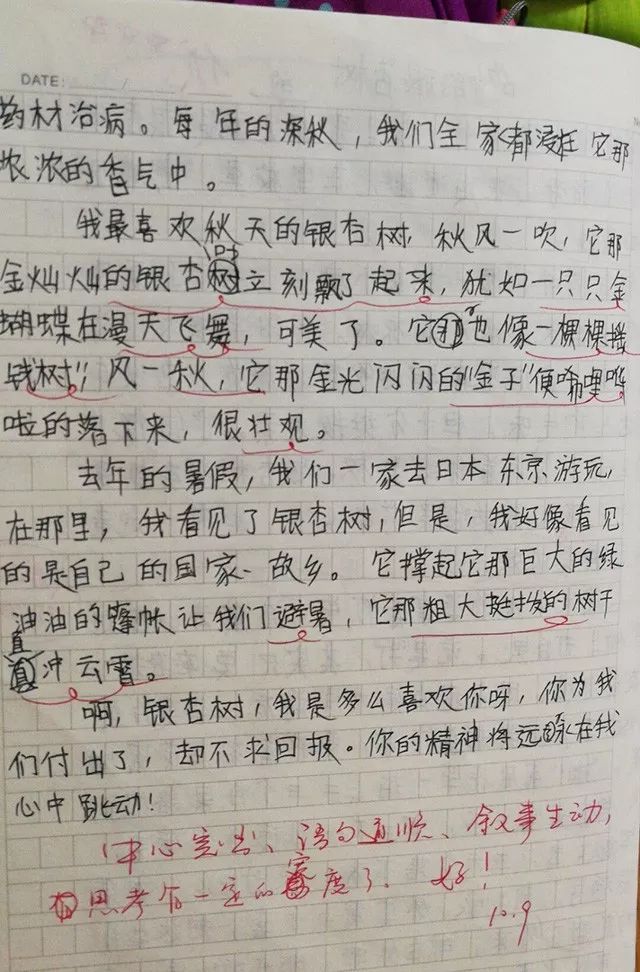 DATE:
药材治病。每年的深秋，我们全家都浸在它那
浓浓的香气中。
我最喜欢秋天的银杏树，秋风一吹，它那
叶
金灿灿的银杏树立刻飘了起来，犹如一只只金
蝴蝶在漫天飞舞，可美了。它那也像一棵棵摇
钱树"；风一秋，它那金光闪闪的"金子"便哗哩哗
啦的落下来，很壮观。
去年的暑假，我们一家去日本东京游玩，
在那里，我看见了银杏树，但是，我好像看见
的是自己的国家、故乡。它撑起它那巨大的绿
油油的篷帐让我们避暑，它那粗大挺拔的树干
直
冲云霄。
啊，银杏树，我是多么喜欢你呀，你为我
们付出了，却不求回报。你的精神将远永在我
心中跳动！
中心突出、语句通顺、叙事生动，
思考有一定的度了。好！
10.9